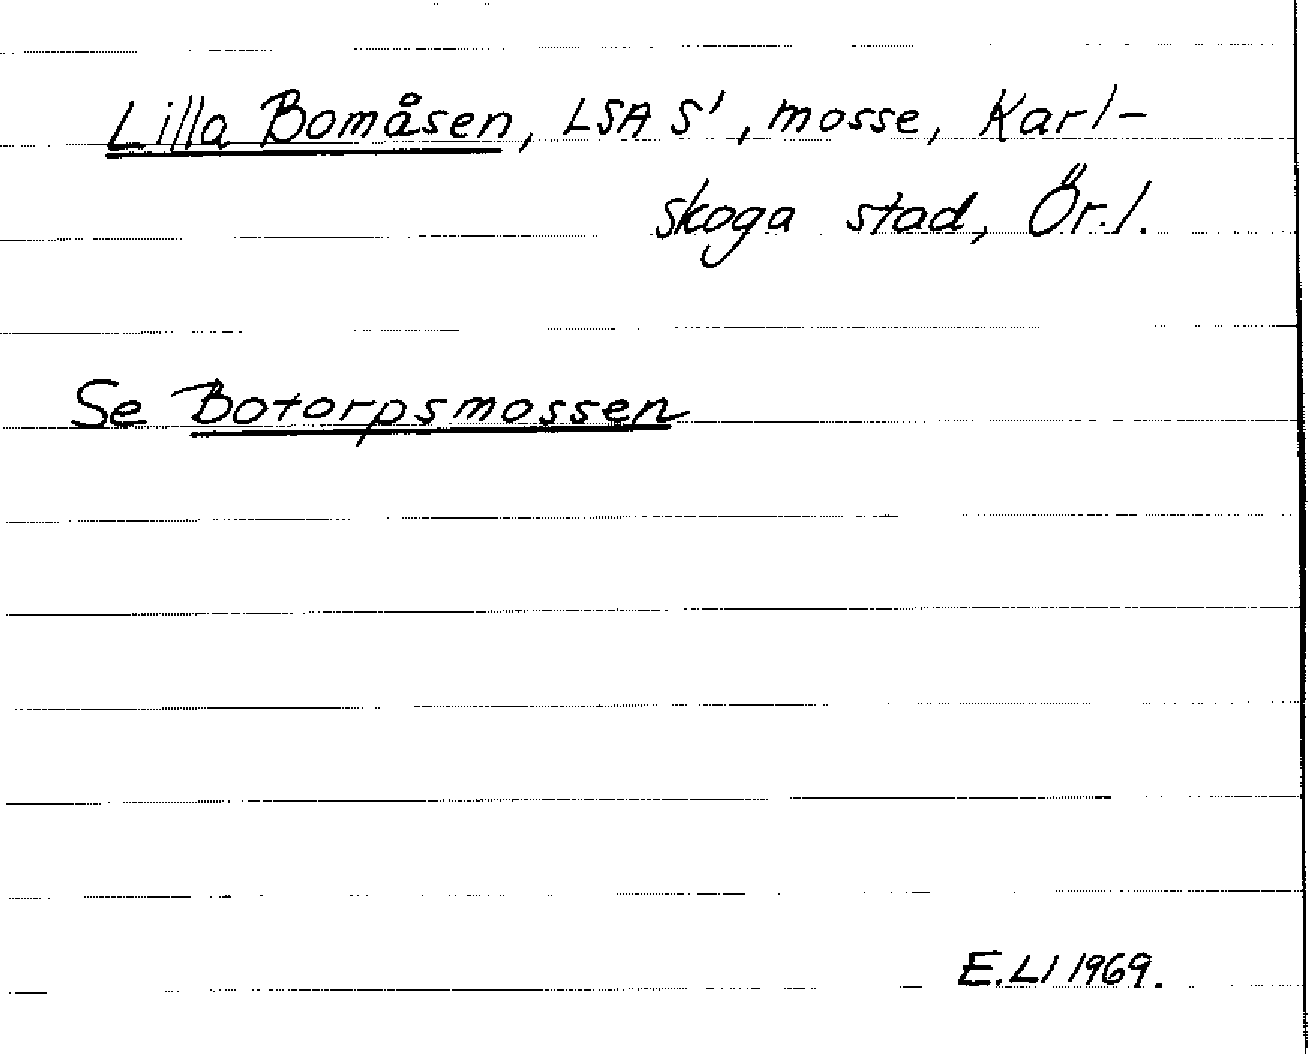 Lilla Bomåsen, LSA S', mosse, Karl-
skoga stad, Ör.l.
Se Botorpsmossen
E.Ll 1969.